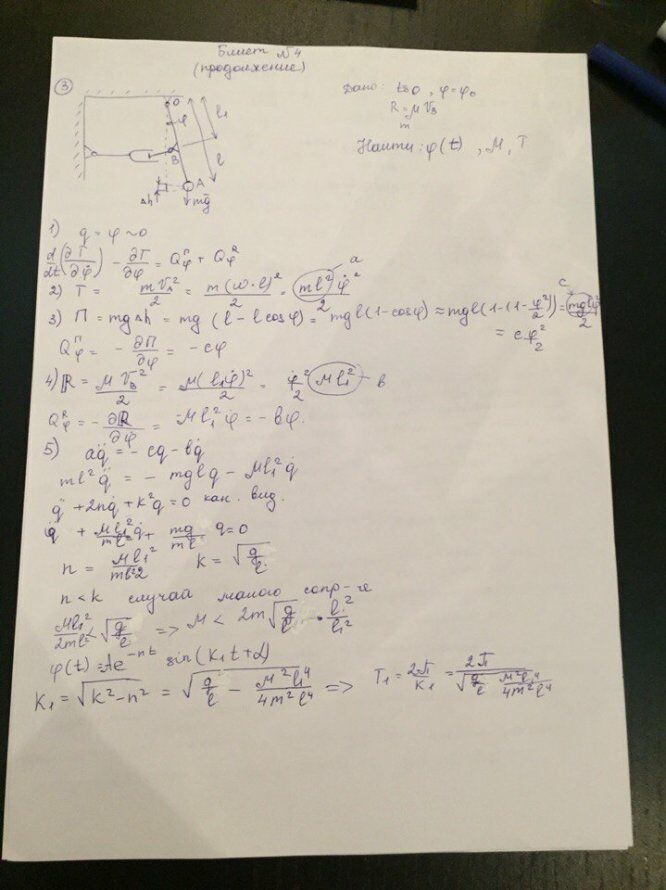 Билет №4
(продолжение)
③
Дано: t=0, φ=φ₀
R = μ V_B
m
Найти: φ(t), μ, T
O
φ
l₁
l
B
A
Δh
mg⃗
1) q = φ ~ 0
d/dt (∂T/∂φ̇) − ∂T/∂φ = Q_φ^П + Q_φ^R
a
2) T = mV_A²/2 = m(ω·l)²/2 = (ml²) φ̇²/2
c
3) П = mgΔh = mg (l − l cosφ) = mgl(1−cosφ) ≈ mgl(1−(1−φ²/2)) = mglφ²/2
= cφ²/2
Q_φ^П = −∂П/∂φ = −cφ
4) R = μV_B²/2 = μ(l₁φ̇)²/2 = φ̇²/2 (μl₁²) – b
Q_φ^R = −∂R/∂φ̇ = −μl₁²φ̇ = −bφ̇.
5) aq̈ = −cq − bq̇
ml²q̈ = −mglq − μl₁²q̇
q̈ + 2nq̇ + k²q = 0 кан. вид.
q̈ + μl₁²/ml² q̇ + mg/ml q = 0
n = μl₁²/ml²2 k = √(g/l).
n < k случай малого сопр-я
μl₁²/2ml² < √(g/l) => μ < 2m√(g/l) · l²/l₁²
φ(t) = Ae^(−nt) sin(k₁t+α)
k₁ = √(k²−n²) = √(g/l − μ²l₁⁴/4m²l⁴) => T₁ = 2π/k₁ = 2π/√(g/l − μ²l₁⁴/4m²l⁴)